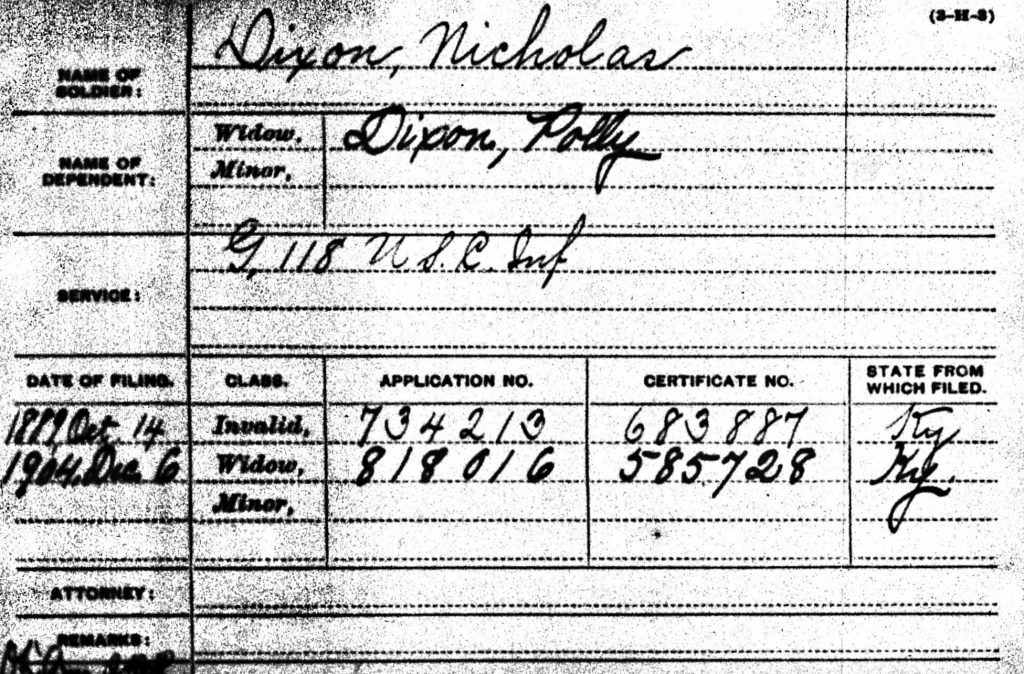 (3-H-3)
NAME OF SOLDIER: Dixon, Nicholas
NAME OF DEPENDENT: Widow, Dixon, Polly
Minor,
SERVICE: G, 118 U.S.C. Inf
DATE OF FILING. CLASS. APPLICATION NO. CERTIFICATE NO. STATE FROM WHICH FILED.
1889 Oct. 14 Invalid, 734213 683887 Ky
1904. Dec. 6 Widow, 818016 585728 Ky.
Minor,
ATTORNEY:
REMARKS: